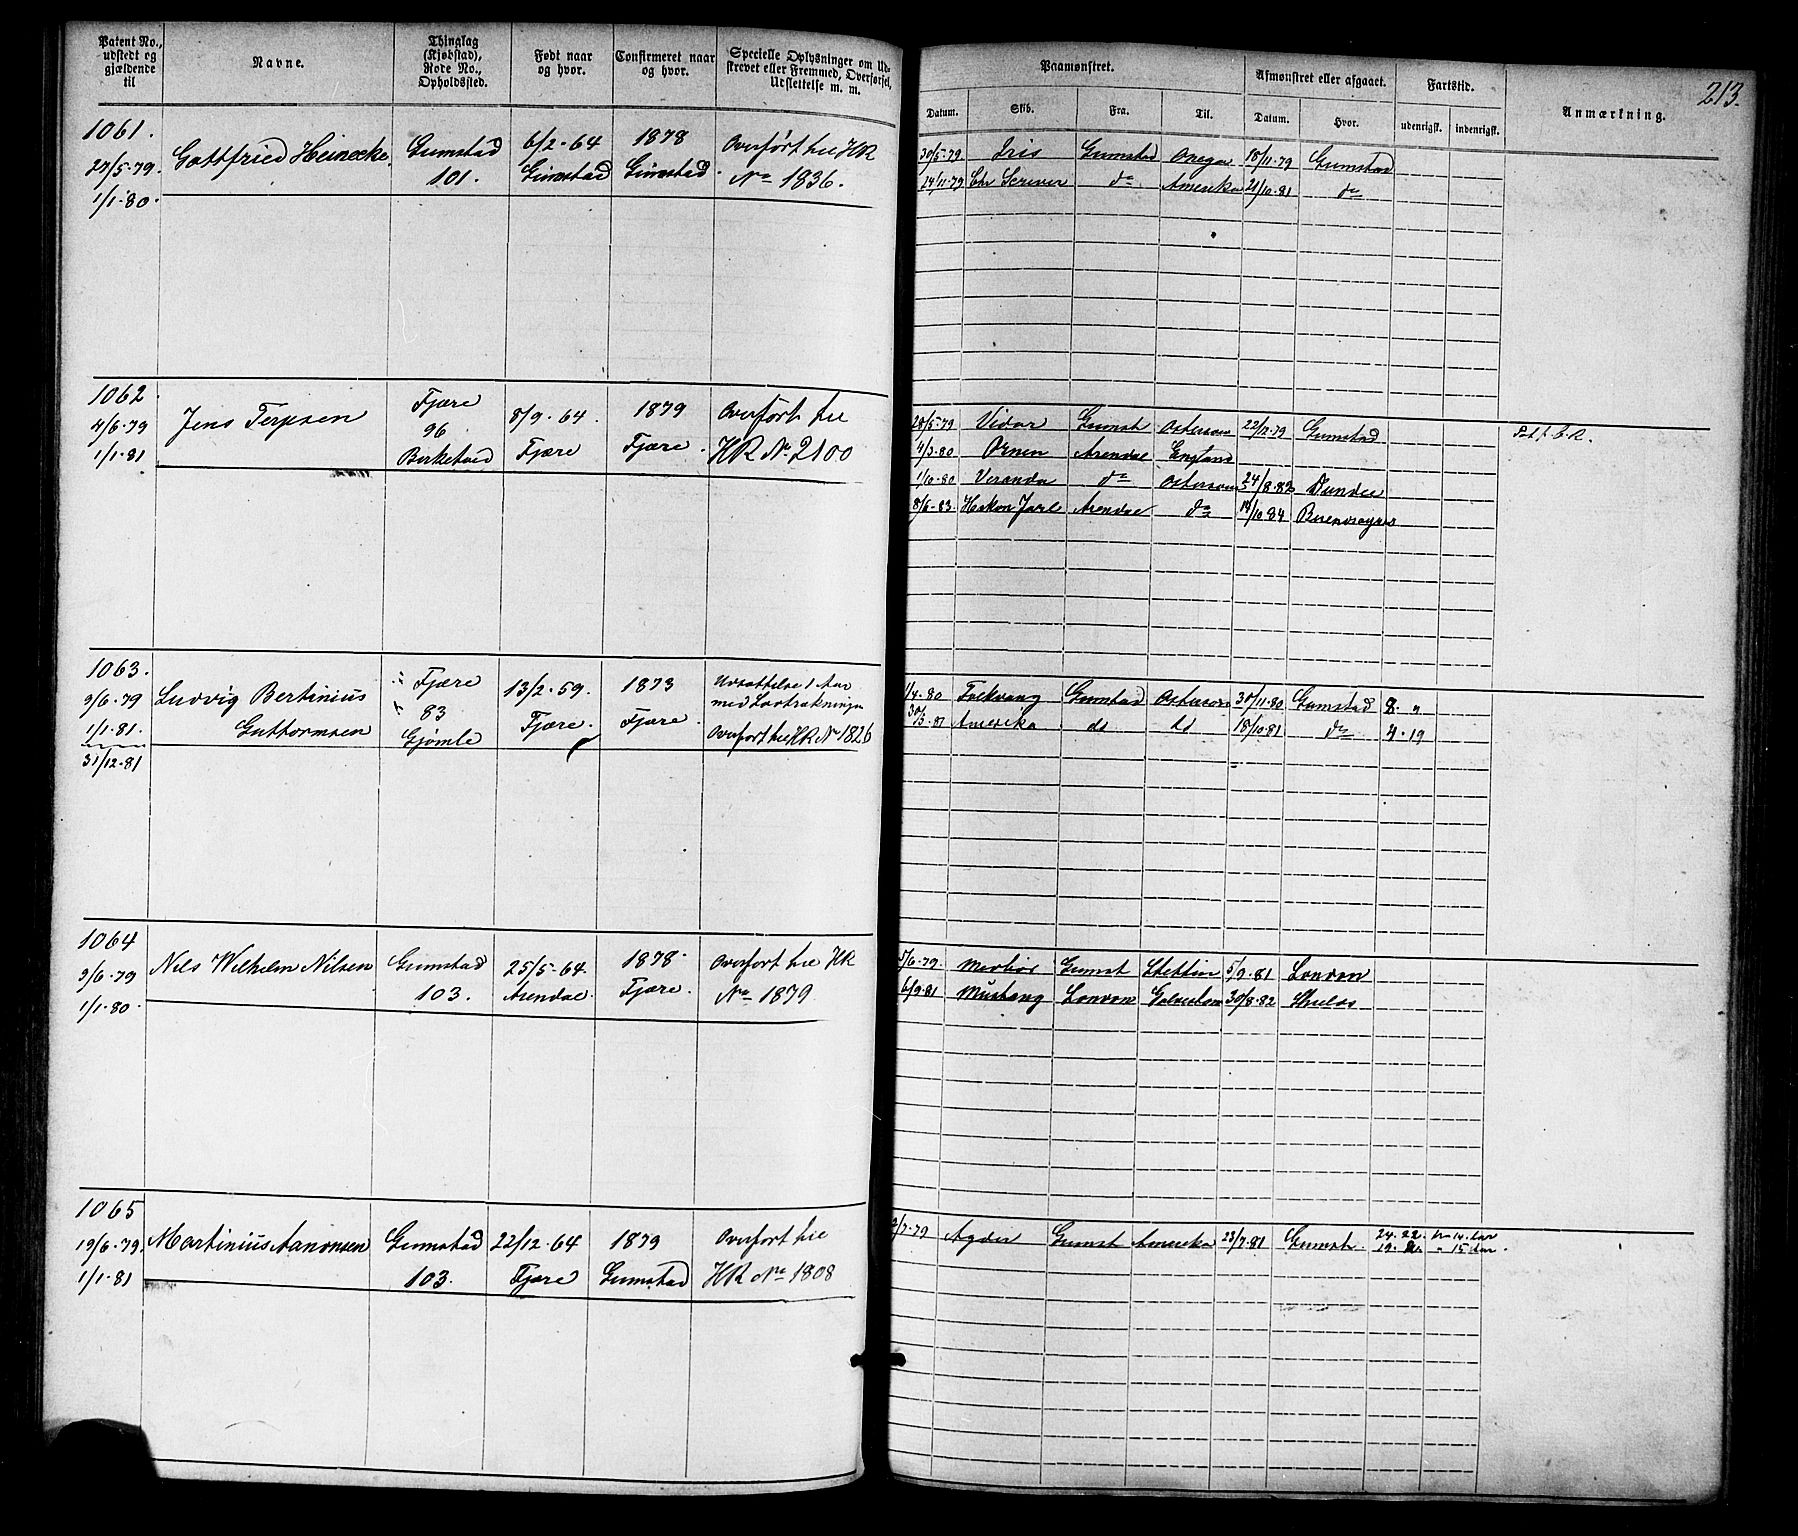 213.
Patent No., udstedt og gjældende til
Navne.
Thinglag (Kjøbstad), Rode No., Opholdssted.
Født naar og hvor.
Confirmeret naar og hvor.
Specielle Oplysninger om Udskrevet eller Fremmed, Overførsel, Udslettelse m. m.
Paamønstret.
Afmønstret eller afgaaet.
Fartstid.
Anmærkning.
Datum. Skib. Fra. Til. Datum. Hvor. udenrigsk. indenrigsk.
1061. Gottfried Heinecke. Grimstad 6/2-64 1878 Overført til HR
27/5-79. 101. Grimstad Grimstad. No 1836.
1/1-80.
30/5-79 Iris Grimstad Onega 18/11-79 Grimstad
24/11-79 Chr Scriver do Amerika 21/10-81 do
1062 Jens Terjesen Fjære 8/9-64. 1879 Overført til
4/6-79 96. Fjære Fjære. HR No 2100
1/1-81 Birketved
28/5-79 Vidar Grimst Østersøen 22/7-79 Grimstad
4/3-80 Ørnen Arendal England
1/10-80 Veranda do Østersøen 24/8-82 Dundee
8/6-83. Hakon Jarl Arendal do 14/10-84 Buenosayres
1063. Ludvig Bertinius Fjære 13/2-59. 1873 Udsættelse 1 Aar
9/6-79 Guttormsen 83 Fjære. Fjære. med Lodtrækningen
1/1-81. Gjømle Overført til HR No 1826
31/12-81
1/4-80 Folkvang Grimstad Østersøen 30/11-80 Grimstad 8 "
30/3-81 Amerika do do 18/10-81 do 4-19
1064 Nils Wilhelm Nilsen Grimstad 25/5-64. 1878- Overført til HR
9/6-79 103. Arendal. Fjære. No 1879
1/1-80
5/6-79. Grimst Stettin 5/9-81 London
6/9-81 Mustang London Galveston 30/8-82 Shields
1065 Martinius Aanonsen Grimstad 22/12-64 1879 Overført til
19/6-79. 103. Fjære Grimstad HR No 1808
1/1-81
2/7-79 Agder Grimst Amerika 23/7-81 Grimst.